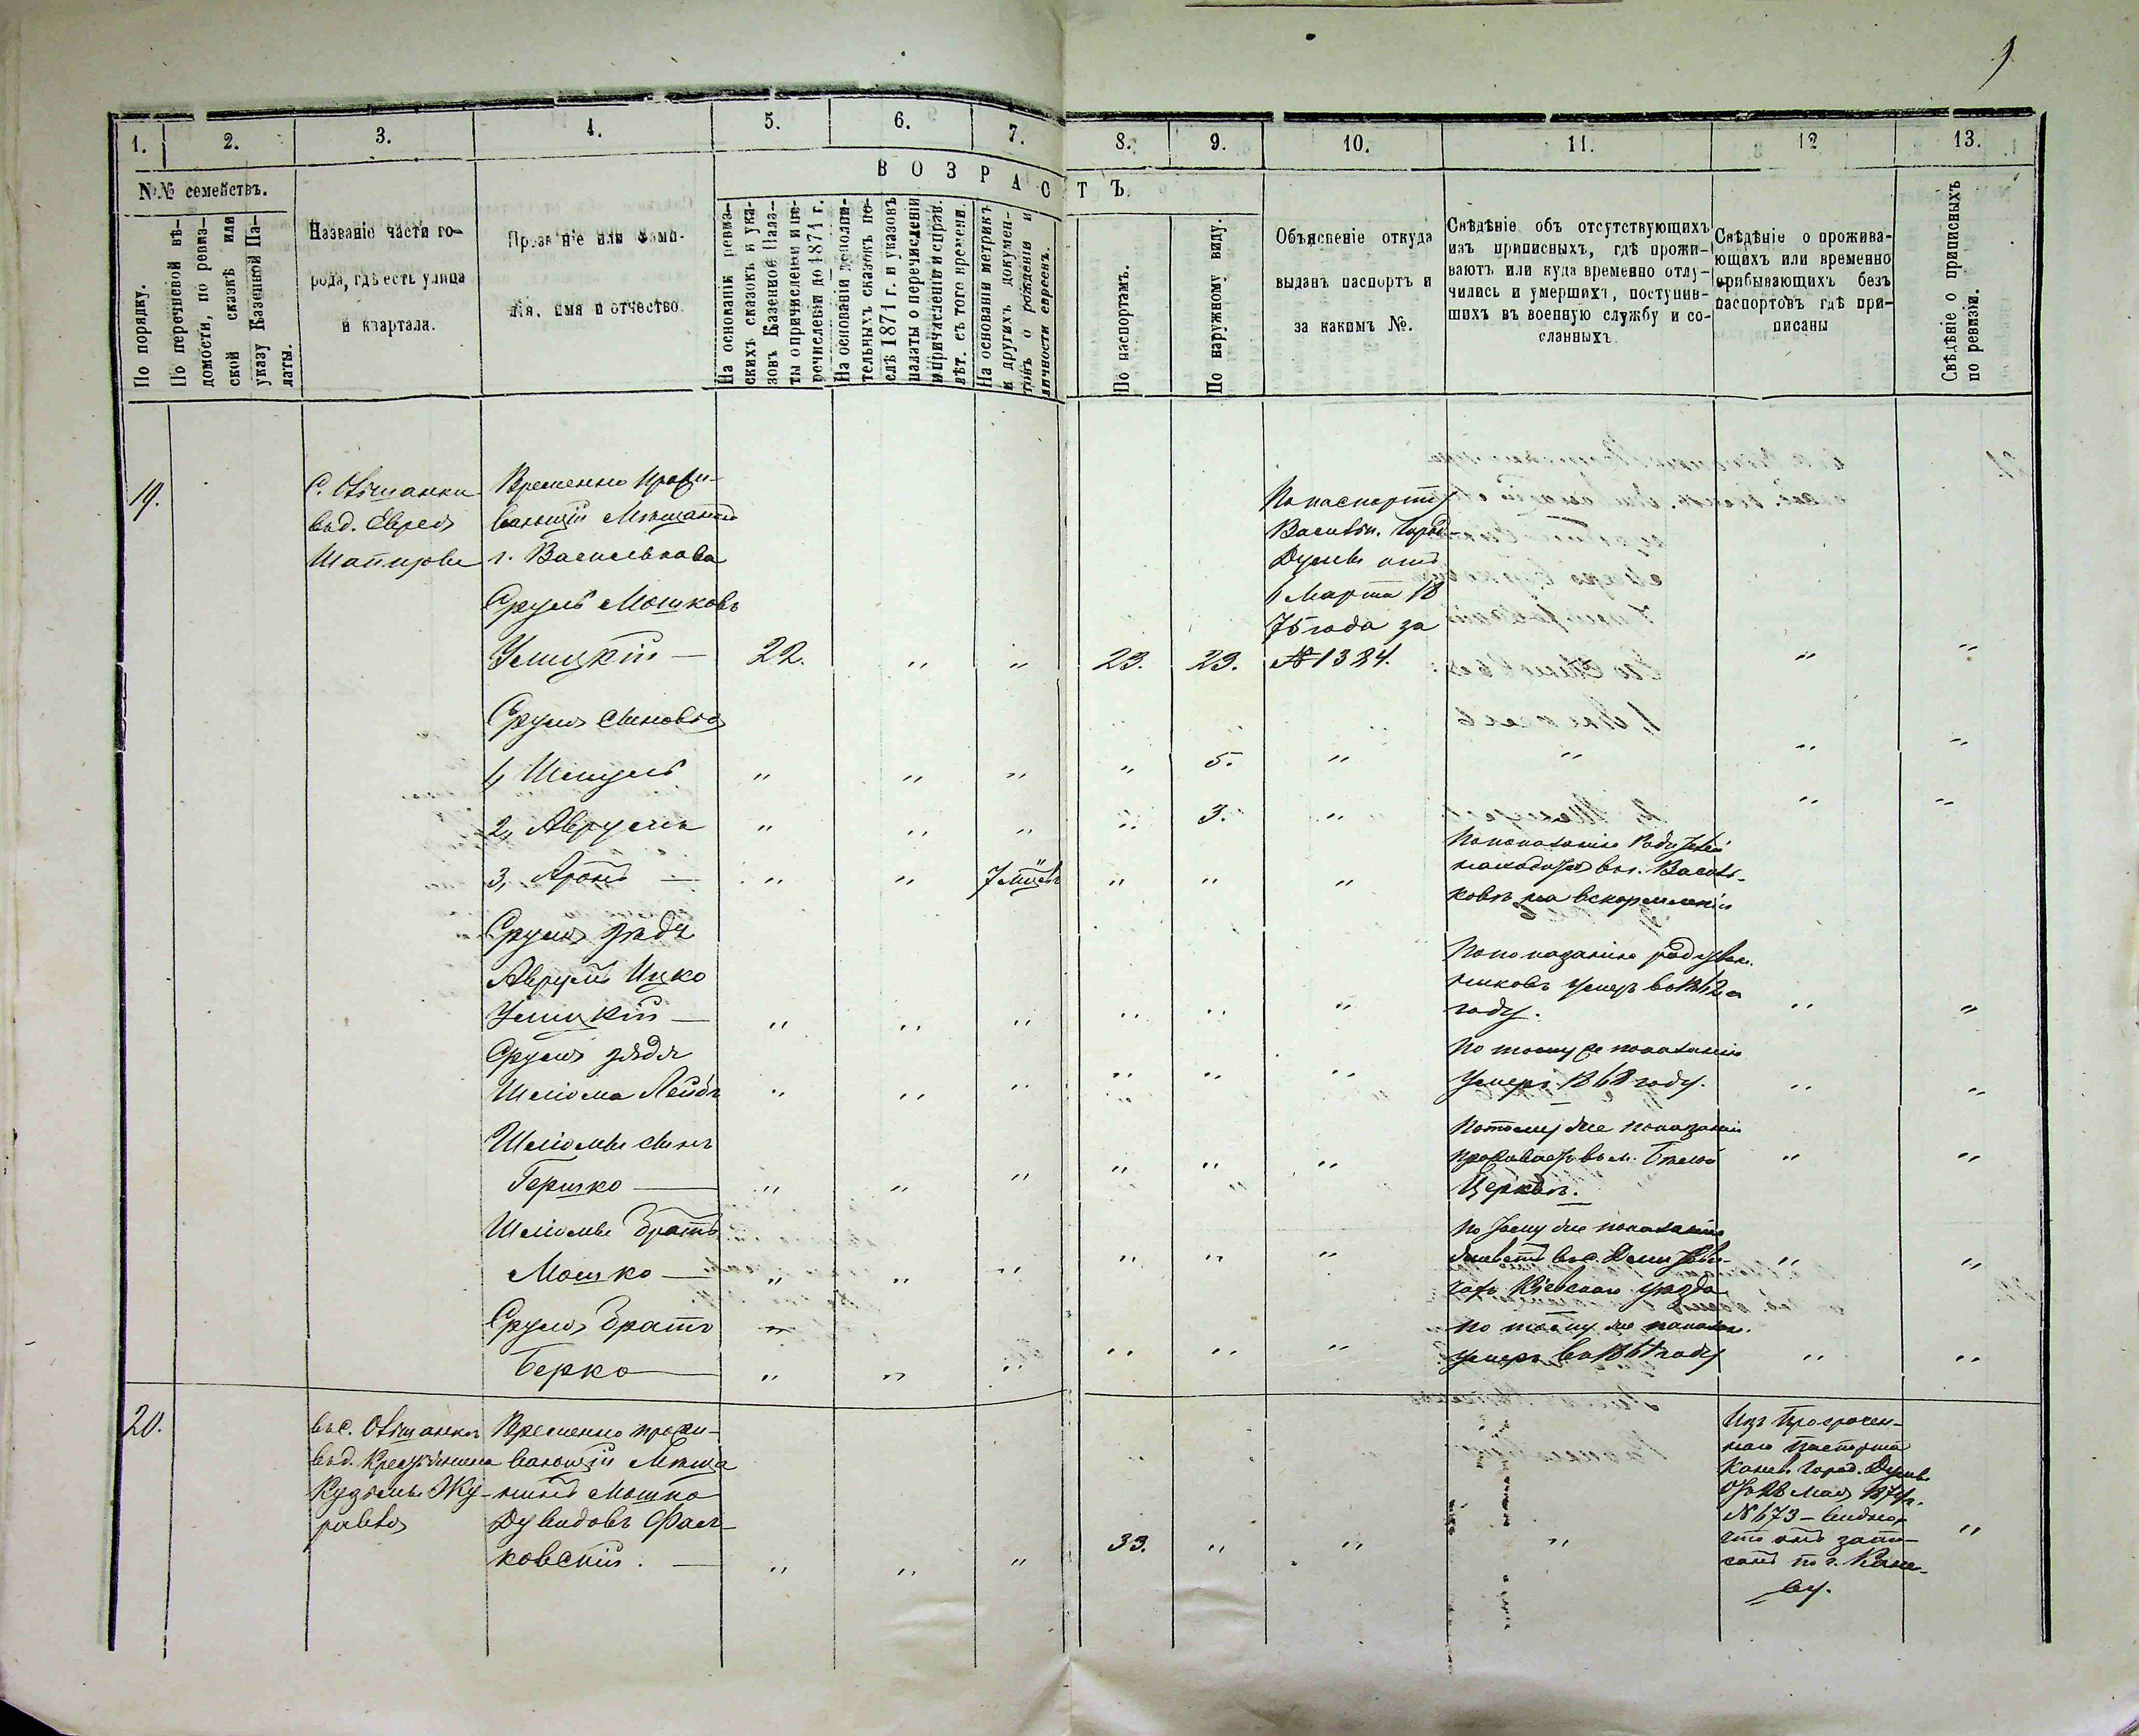 9
1.
2.
3.
4.
5.
6.
7.
8.
9.
10.
11.
12
13.
№№ семействъ.
По порядку.
По перечневой вѣ-
домости, по ревиз-
ской сказкѣ или
указу Казенной Па-
латы.
Названіе части го-
рода, гдѣ есть улица
и квартала.
Прозваніе или фами-
лія, имя и отчество.
ВОЗРАСТЪ.
На основаніи ревиз-
скихъ сказокъ и ука-
зовъ Казенной Пала-
ты о причисленіи и пе-
речисленіи до 1871 г.
На основаніи дополни-
тельныхъ сказокъ по-
слѣ 1871 г. и указовъ
палаты о перечисленіи
и причисленіи и справ.
вѣт. съ того времени.
На основаніи метрикъ
и другихъ докумен-
товъ о рожденіи и
личности евреевъ.
По паспортамъ.
По наружному виду.
Объясненіе откуда
выданъ паспортъ и
за какимъ №.
Свѣдѣніе объ отсутствующихъ
изъ приписныхъ, гдѣ прожи-
ваютъ или куда временно отлу-
чились и умершихъ, поступив-
шихъ въ военную службу и со-
сланныхъ
Свѣдѣніе о прожива-
ющихъ или временно
прибывающихъ безъ
паспортовъ гдѣ при-
писаны
Свѣдѣніе о приписныхъ
по ревизіи.
19.
С. Ольшанки
въ д. Еврея
Шапировы
Временно прожи-
вающій Мѣщанинъ
г. Василькова
Сруль Мошковъ
Улицкій — 22. " " 23. 23.
По паспорту
Васильк. Город.
Думы отъ
4 Марта 18
75 года за
№ 1384. " "
Сруля сыновья
1, Шмуль " " " " 5. " " " "
2, Аврумъ " " " " 3. " " "
3, Аронъ — " " 7 мѣсяц. " " "
По показанію Родителей
находится въ г. Василь-
ковѣ на вскормленіи
Сруля дядя
Аврумъ Ицко
Улицкій — " " " " " "
По показанію родствен.
никовъ умеръ въ 1862 м
году. " "
Сруля дядя
Шліома Лейба " " " " " "
По тому же показанію
умеръ 1868 году. " "
Шліомы сынъ
Гершко — " " " " " "
По тому же показанію
проживаетъ въ м. Бѣлой
Церквѣ. " "
Шліомы Братъ
Мошко — " " " " " "
По тому же показанію
живетъ въ с.
Кіевскаго уѣзда " "
Сруля Братъ
Берко — " " " " " "
По тому же показан.
умеръ въ 1861 году " "
20.
въ с. Ольшанкѣ
въ д. Крестьянина
Кузьмы Жу-
равля
Временно прожи-
вающій Мѣща
нинъ Мошко
Дувидовъ Фаль-
ковскій. — " " " 33. " " "
Изъ просрочен-
наго паспорта
Канев. Город. Думы
отъ 28 Мая 187 г.
№ 673 — видно
что онъ запи-
санъ по г. Кане-
ву. "